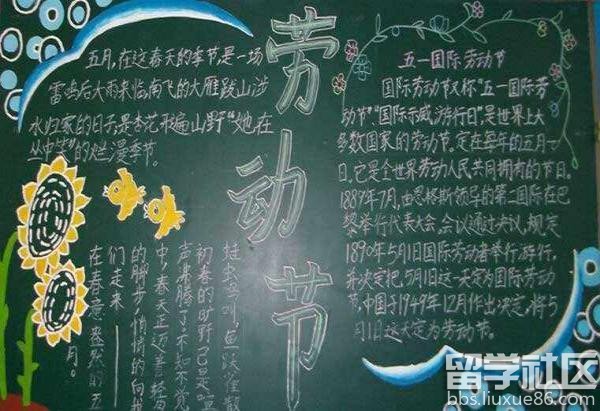 劳动节
五月,在这春天的季节,是一场
雷鸣后大雨来临,南飞的大雁跋山涉
水归家的日子,是杏花形遍山野“她在
丛中笑”的烂漫季节。
蛙虫鸣叫,鱼跃
初春的田野已是
声沸腾了,不知不觉
中,春天正迈着轻
的脚步,悄悄的向我
们走来——
在春意盎然的五
月。
五一国际劳动节
国际劳动节又称“五一国际劳
动节”“国际示威游行日”是世界上大
多数国家的劳动节。定在每年的五月一
日。它是全世界劳动人民共同拥有的节日。
1889年7月,由恩格斯领导的第二国际在巴
黎举行代表大会,会议通过决议,规定
1890年5月1日国际劳动者举行游行,
并决定把5月1日这一天定为国际劳动
节,中国于1949年12月作出决定,将5
月1日这天定为劳动节。
留学社区
bbs.liuxue86.com